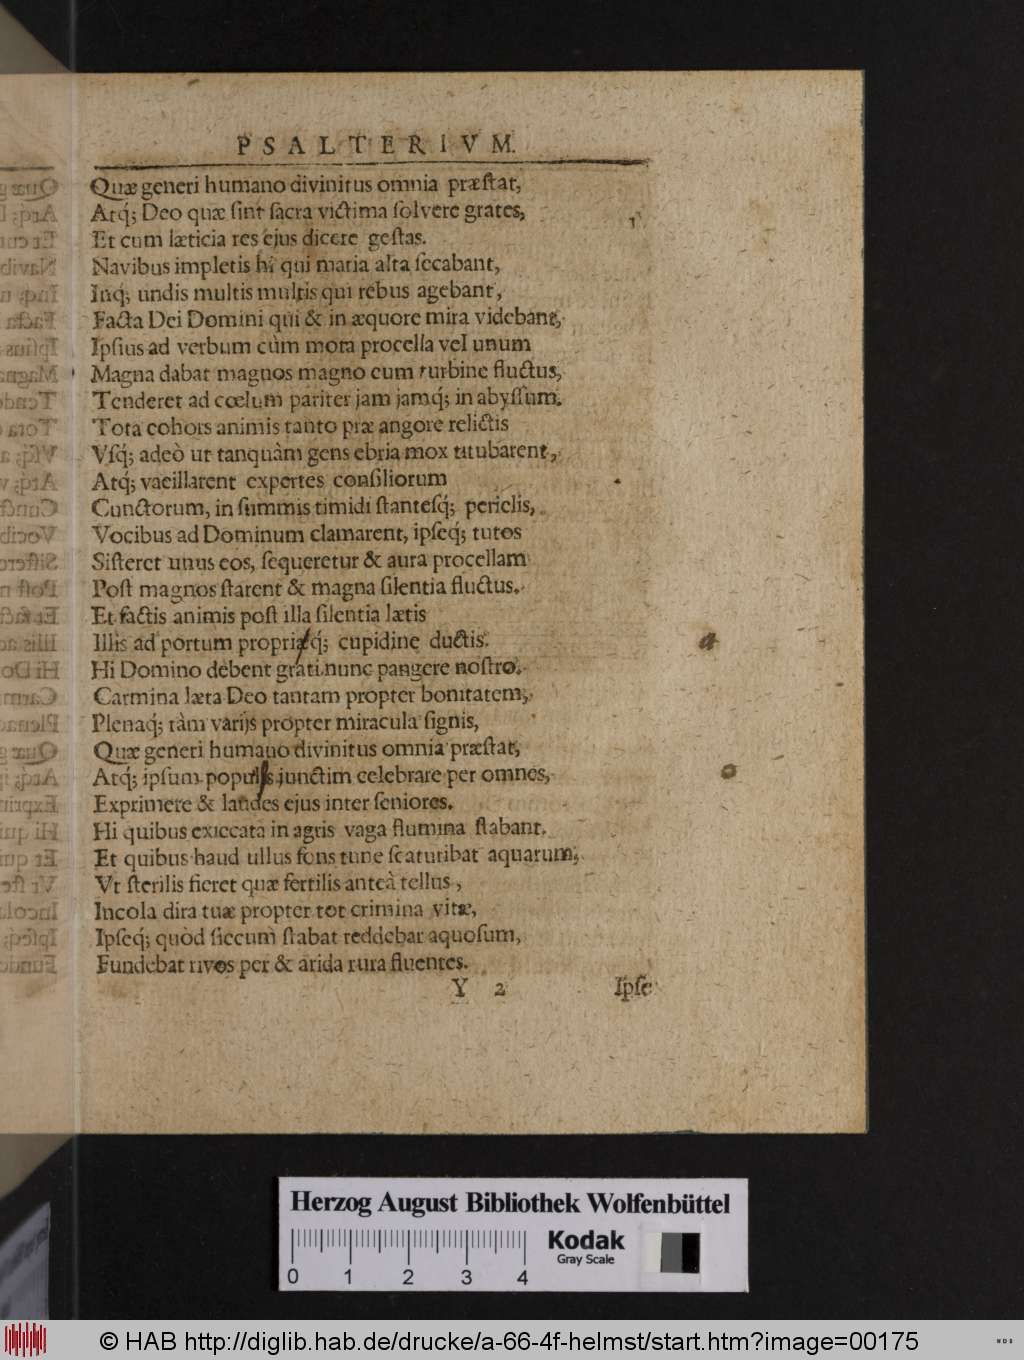 PSALTERIVM.
Quæ generi humano divinitus omnia præſtat,
Atq́; Deo quæ ſint ſacra victima ſolvere grates,
Et cum læticia res ejus dicere geſtas.
Navibus impletis hi qui maria alta ſecabant,
Inq́; undis multis multis qui rebus agebant,
Facta Dei Domini qui & in æquore mira videbant,
Ipſius ad verbum cùm mota procella vel unum
Magna dabat magnos magno cum turbine fluctus,
Tenderet ad cœlum pariter jam jamq́; in abyſſum.
Tota cohors animis tanto præ angore relictis
Vſq́; adeò ut tanquàm gens ebria mox titubarent,
Atq́; vacillarent expertes conſiliorum
Cunctorum, in ſummis timidi ſtanteſq́; periclis,
Vocibus ad Dominum clamarent, ipſeq́; tutos
Siſteret unus eos, ſequeretur & aura procellam
Poſt magnos ſtarent & magna ſilentia fluctus.
Et factis animis poſt illa ſilentia lætis
Illis ad portum propriaq́; cupidine ductis.
Hi Domino debent grati nunc pangere noſtro.
Carmina læta Deo tantam propter bonitatem,
Plenaq́; tàm varijs propter miracula ſignis,
Quæ generi humano divinitus omnia præſtat,
Atq́; ipſum populos junctim celebrare per omnes,
Exprimere & laudes ejus inter ſeniores.
Hi quibus exiccata in agris vaga flumina ſtabant.
Et quibus haud ullus fons tunc ſcaturibat aquarum,
Vt ſterilis fieret quæ fertilis anteà tellus,
Incola dira tuæ propter tot crimina vitæ,
Ipſeq́; quòd ſiccum ſtabat reddebat aquoſum,
Fundebat rivos per & arida rura fluentes.
Y 2 Ipſe
a
o
Herzog August Bibliothek Wolfenbüttel
Kodak
Gray Scale
0 1 2 3 4
© HAB http://diglib.hab.de/drucke/a-66-4f-helmst/start.htm?image=00175